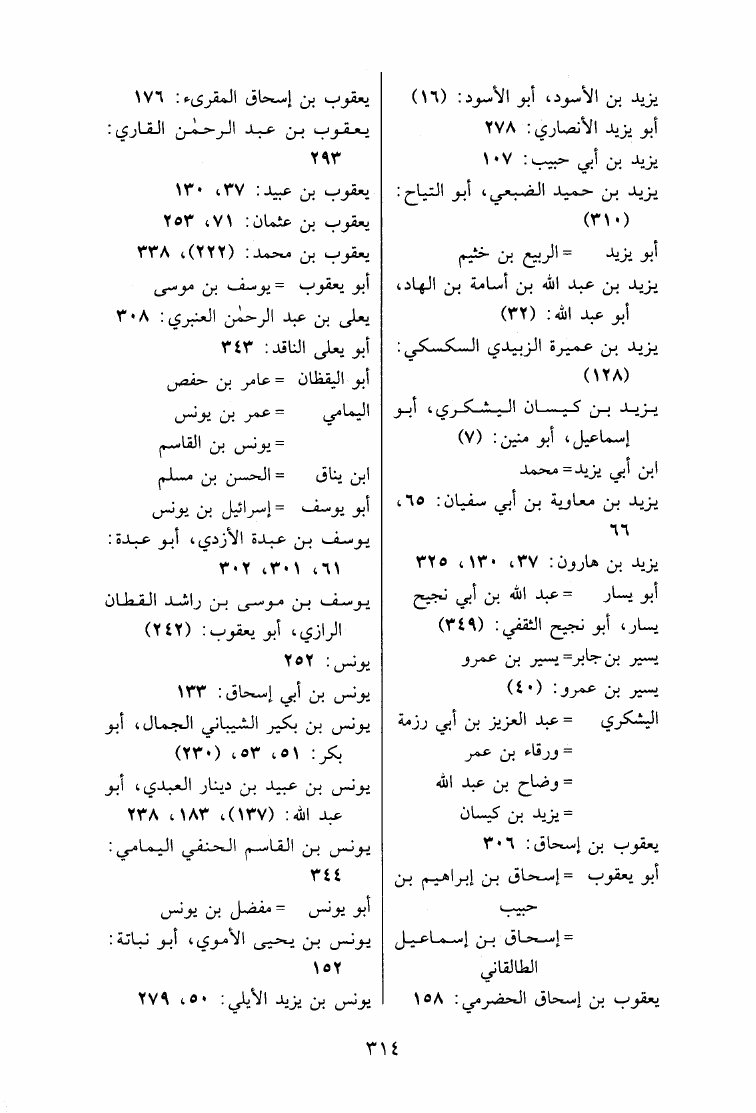 يزيد بن الأسود، أبو الأسود: (١٦)
أبو يزيد الأنصاري: ٢٧٨
يزيد بن أبي حبيب: ١٠٧
يزيد بن حميد الضبعي، أبو التياح:
(٣١٠)
أبو يزيد = الربيع بن خثيم
يزيد بن عبد الله بن أسامة بن الهاد،
أبو عبد الله: (٣٢)
يزيد بن عميرة الزبيدي السكسكي:
(١٢٨)
يزيد بن كيسان اليشكري، أبو
إسماعيل، أبو منين: (٧)
ابن أبي يزيد = محمد
يزيد بن معاوية بن أبي سفيان: ٦٥،
٦٦
يزيد بن هارون: ٣٧، ١٣٠، ٣٢٥
أبو يسار = عبد الله بن أبي نجيح
يسار، أبو نجيح الثقفي: (٣٤٩)
يسير بن جابر = يسير بن عمرو
يسير بن عمرو: (٤٠)
اليشكري = عبد العزيز بن أبي رزمة
= ورقاء بن عمر
= وضاح بن عبد الله
= يزيد بن كيسان
يعقوب بن إسحاق: ٣٠٦
أبو يعقوب = إسحاق بن إبراهيم بن
حبيب
= إسحاق بن إسماعيل
الطالقاني
يعقوب بن إسحاق الحضرمي: ١٥٨
يعقوب بن إسحاق المقرىء: ١٧٦
يعقوب بن عبد الرحمٰن القاري:
٢٩٣
يعقوب بن عبيد: ٣٧، ١٣٠
يعقوب بن عثمان: ٧١، ٢٥٣
يعقوب بن محمد: (٢٢٢)، ٣٣٨
أبو يعقوب = يوسف بن موسى
يعلى بن عبد الرحمٰن العنبري: ٣٠٨
أبو يعلى الناقد: ٣٤٣
أبو اليقظان = عامر بن حفص
اليمامي = عمر بن يونس
= يونس بن القاسم
ابن يناق = الحسن بن مسلم
أبو يوسف = إسرائيل بن يونس
يوسف بن عبدة الأزدي، أبو عبدة:
٦١، ٣٠١، ٣٠٢
يوسف بن موسى بن راشد القطان
الرازي، أبو يعقوب: (٢٤٢)
يونس: ٢٥٢
يونس بن أبي إسحاق: ١٣٣
يونس بن بكير الشيباني الجمال، أبو
بكر: ٥١، ٥٣، (٢٣٠)
يونس بن عبيد بن دينار العبدي، أبو
عبد الله: (١٣٧)، ١٨٣، ٢٣٨
يونس بن القاسم الحنفي اليمامي:
٣٤٤
أبو يونس = مفضل بن يونس
يونس بن يحيى الأموي، أبو نباتة:
١٥٢
يونس بن يزيد الأيلي: ٥٠، ٢٧٩
٣١٤